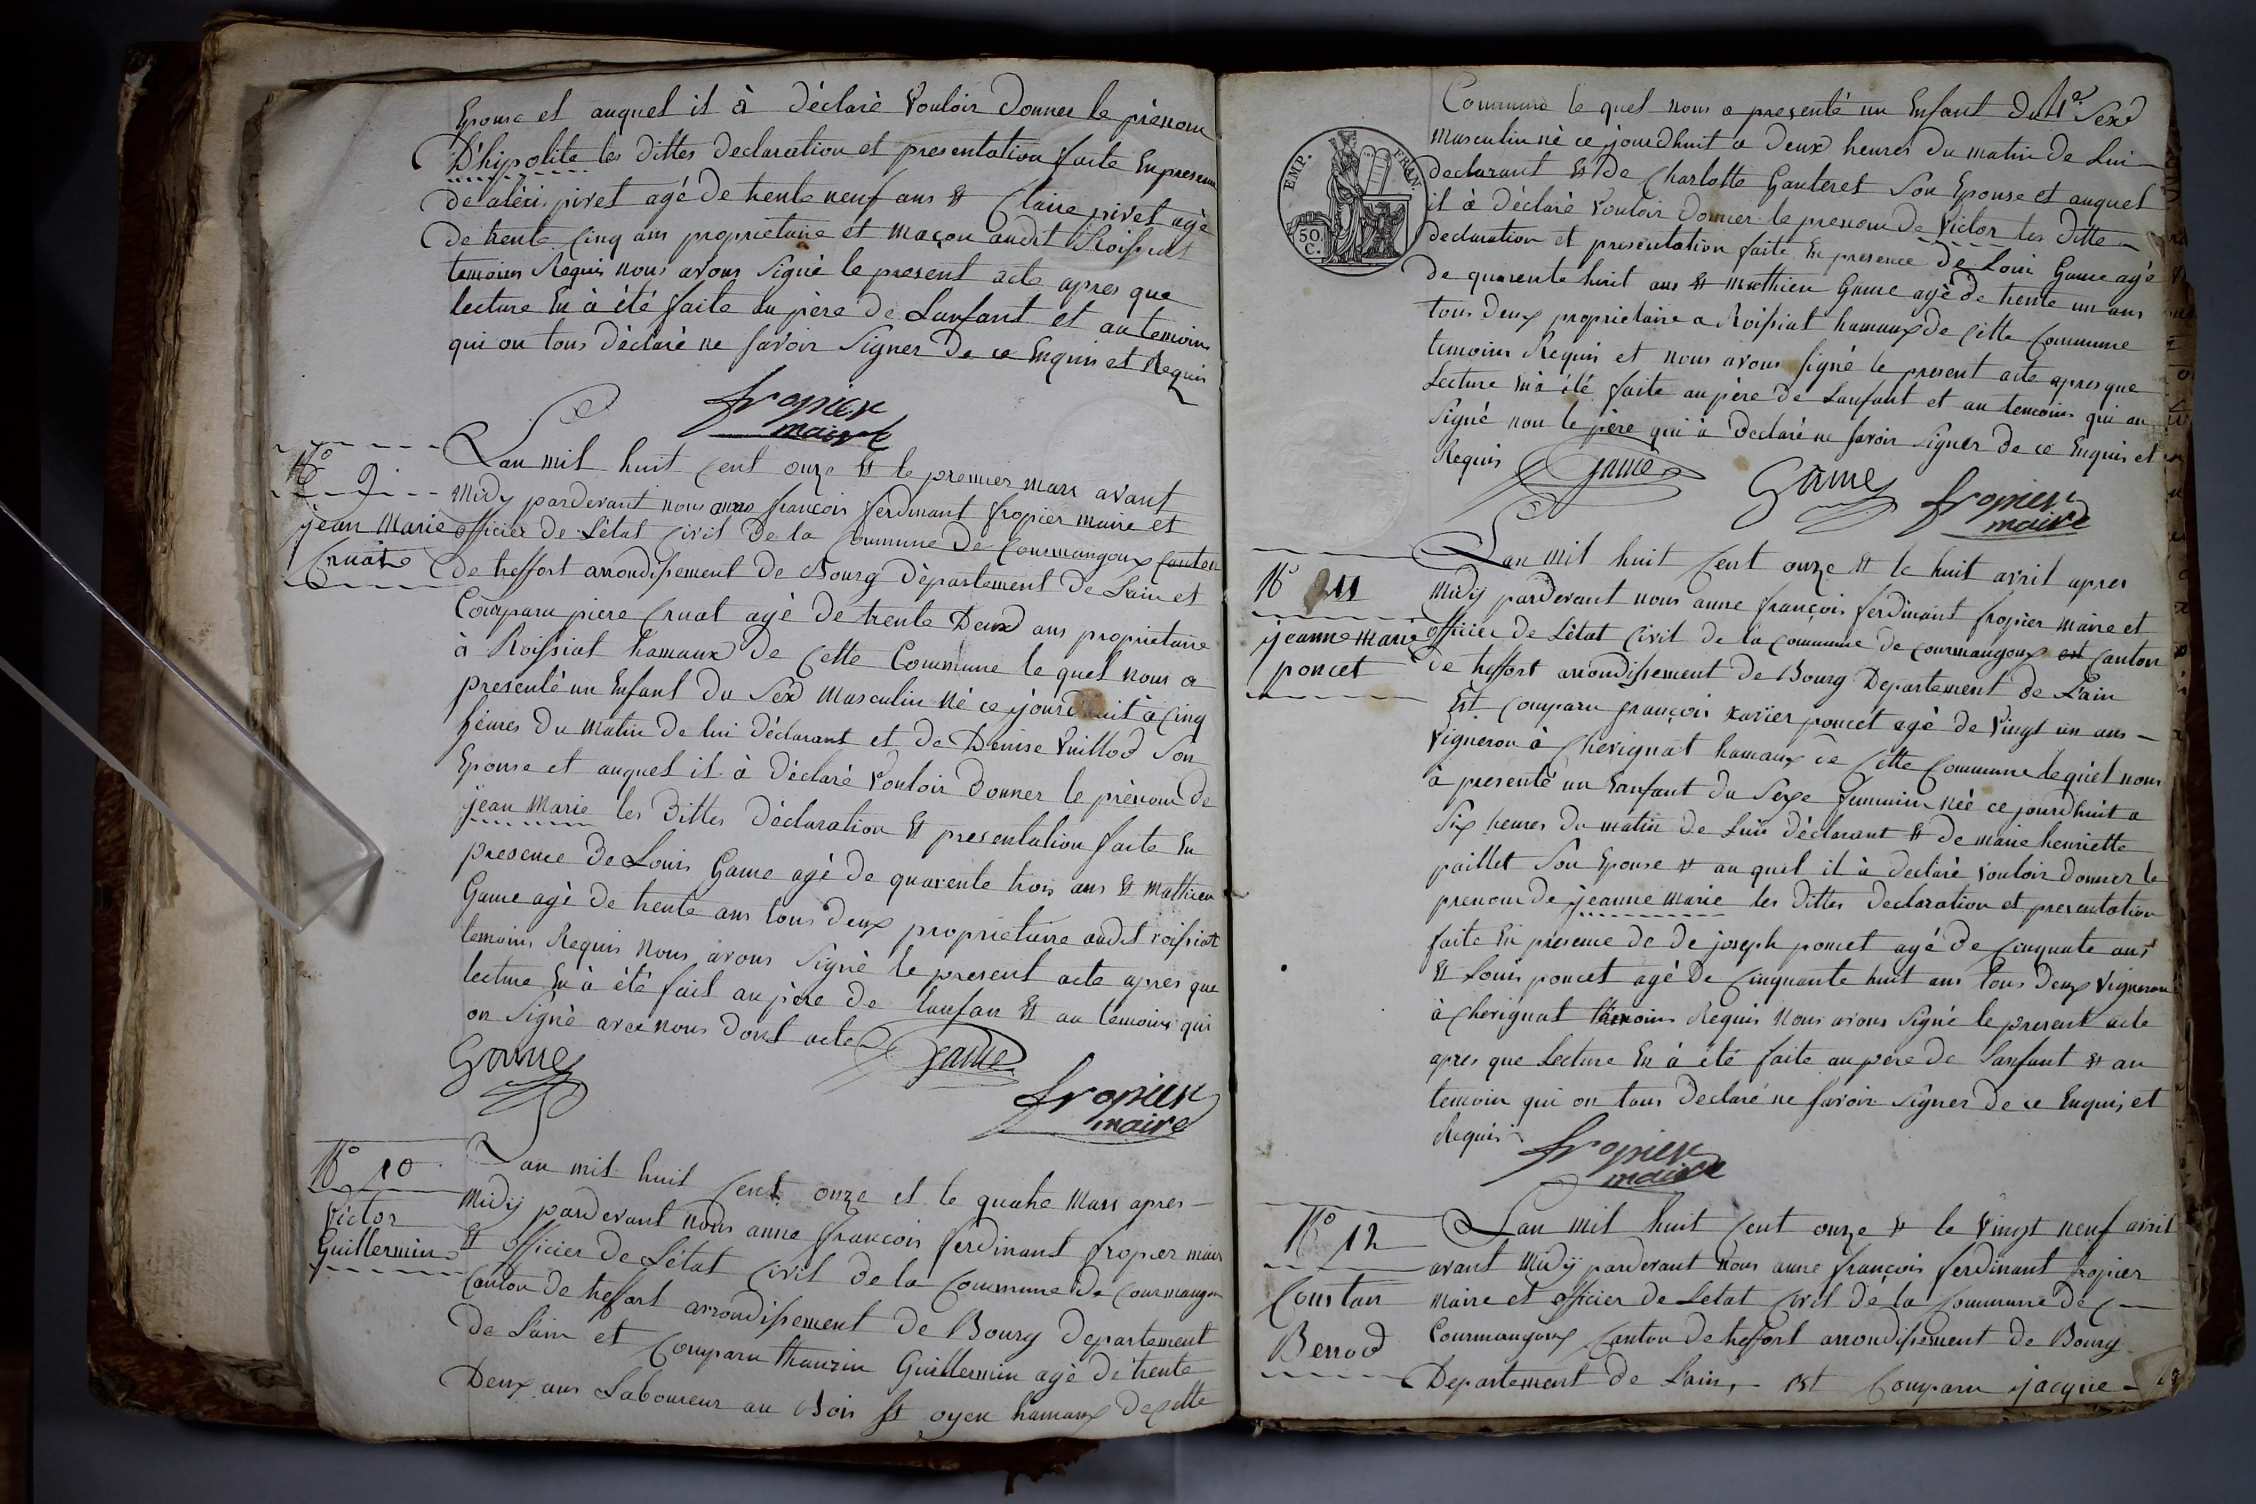 Epouse et auquel il à déclaré vouloir donner le prénom
D'hipolite les dittes declaration et presentation faite En presence
de aléxi pivet agé de trente neuf ans et Claire pivet agé
de trente Cinq ans propriétaire et maçon audit Roissiat
temoins Requis nous avons Signé le present acte apres que
lecture En à été faite au père de Lanfant et au temoins
qui on tous déclaré ne savoir Signer De ce Enquis et Requis
fropier
maire
N° 9
jean Marie
Cruat
Lan mil huit Cent onze et le premier mars avant
Midy pardevant nous anne françois ferdinant fropier maire et
officier de L'état Civil De la Commune De Courmangoux Canton
de treffort arrondissement de Bourg département De Lain et
Comparu piere Cruat agé de trente Deux ans propriétaire
à Roissiat hamaux de Cette Commune le quel nous a
presenté un Enfant du Sex masculin né ce jourdhuit à Cinq
heures du matin de lui déclarant et de Denise Vuillod Son
Epouse et auquel il à Déclaré Vouloir donner le prénom de
jean Marie les dittes déclaration et presentation faite En
presence de Louis Game agé de quarente trois ans et Mathieu
Game agé de trente ans tous deux propriétaire audit roissiat
temoins Requis nous avons Signé le present acte apres que
lecture En à été fait au père de lanfan et au temoins qui
on Signé avec nous dont acte
Game
Game
fropier
maire
N° 10
Victor
Guillermin
Lan mil huit Cent onze et le quatre Mars apres
Midy pardevant nous anne françois ferdinant fropier maire
et officier de L'état Civil de la Commune de Courmangou
Canton de treffort arrondissement de Bourg département
De Lain et Comparu thauzin Guillermin agé de trente
Deux ans Laboureur au Bois St oyen hamaux De Cette
EMP. FRAN.
50
C.
Commune le quel nous a presenté un Enfant du Sexe
masculin né ce jourdhuit a deux heures du matin de Lui
declarant et de Charlotte Gauteret Son Epouse et auquel
il à déclaré vouloir donner le prenom de Victor les ditte
declaration et presentation faite En presence de Loui Game agé
de quarente huit ans et mathieu Game agé de trente un ans
tous deux propriétaire a Roissiat hamaux de Cette Commune
temoins Requis et nous avons signé le present acte apres que
Lecture En à été faite au père de Lanfant et au temoins qui on
Signé non le père qui à declaré ne savoir Signer de ce Enquis et
Requis
Game
Game
fropier
maire
N° 11
jeanne marie
poncet
Lan mil huit Cent onze et le huit avril apres
Midy pardevant nous anne françois ferdinant fropier maire et
officier de L'état Civil de la Commune de Courmangoux et Canton
de treffort arrondissement de Bourg Departement de Lain
Est Comparu françois xavier poncet agé de vingt un ans
Vigneron à Chevignat hamaux de Cette Commune lequel nous
à presenté un Lanfant du Sexe feminin née ce jourdhuit a
Six heures du matin de Lui déclarant et de marie henriette
paillet Son Epouse et au quel il à déclaré vouloir donner le
prenom de jeanne marie les dittes declaration et presentation
faite En presence de de joseph poncet agé de Cinquante ans
et Louis poncet agé de Cinquante huit ans tous deux vigneron
à Chevignat temoins Requis nous avons Signé le present acte
apres que Lecture En à été faite au père de Lanfant et au
temoin qui on tous declaré ne savoir Signer de ce Enquis et
Requis
fropier
maire
N° 12
Constan
Berrod
Lan mil huit Cent onze et le vingt neuf avril
avant Midy pardevant nous anne françois ferdinant fropier
maire et officier de Letat Civil de la Commune de C
Courmangoux Canton de treffort arrondissement de Bourg
Departement de Lain, Est Comparu jacque